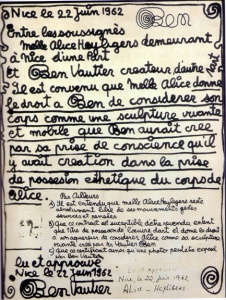 Nice le 22 juin 1962 Ben
Entre les soussignés
Melle Alice Heyligers demeurant
à Nice d'une part
et Ben Vautier createur d'autre part
Il est convenu que Melle Alice donne
le droit a Ben de considerer son
corps comme une sculpture vivante
et mobile que Ben aurait cree
par sa prise de conscience qu'il
y avait creation dans la prise
de possesion esthetique du corps de
Alice
Par Ailleurs
1) Il est entendu que melle Alice Heyligers reste
absolument libre de ses mouvements gestes
et pensées
2) que ce contrat est
4) que ce certificat ainsi qu'une photo peuvent etre
lu et approuvé
Nice le 22 juin 1962
Ben Vautier
lu et approuvé
Nice, le 22 juin 1962
Alice Heyligers